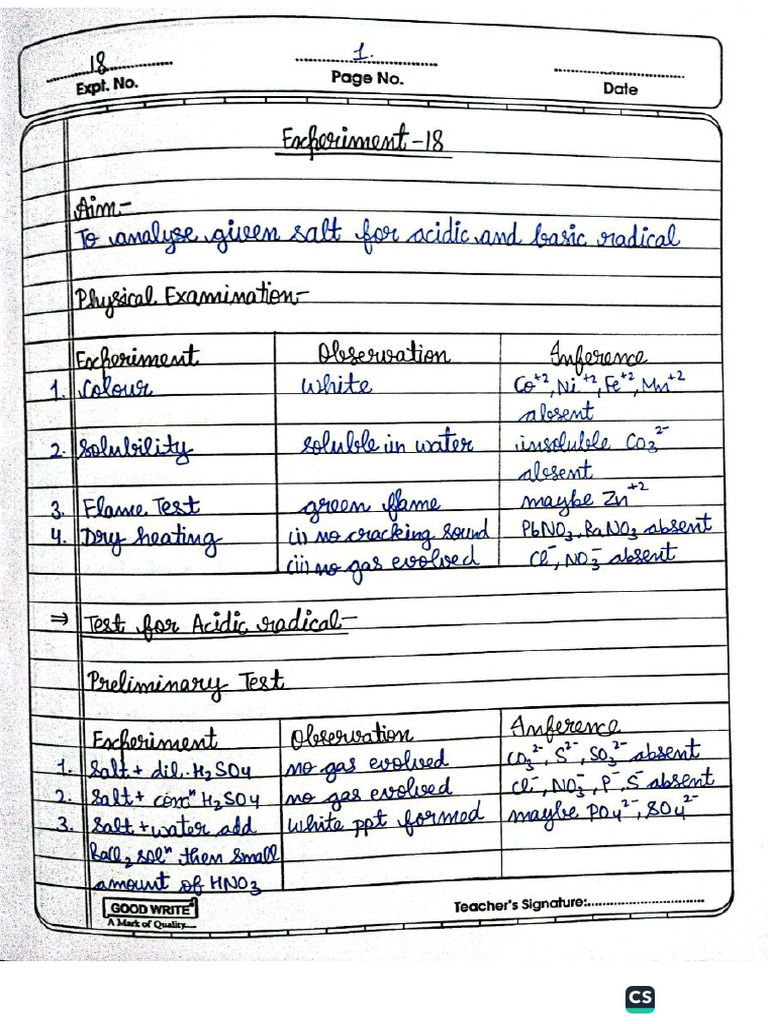 18
Expt. No.
1.
Page No.
Date
Experiment-18
Aim-
To analyse given salt for acidic and basic radical
Physical Examination-
Experiment Observation Inference
1. Colour white Co+2, Ni+2, Fe+2, Mn+2
absent
2. Solubility soluble in water insoluble CO3 2-
absent
3. Flame Test green flame maybe Zn+2
4. Dry heating (i) no cracking sound PbNO3, BaNO3 absent
(ii) no gas evolved Cl-, NO3- absent
⇒ Test for Acidic radical-
Preliminary Test
Experiment Observation Inference
1. Salt + dil. H2SO4 no gas evolved CO3 2-, S2-, SO3 2- absent
2. Salt + concn H2SO4 no gas evolved Cl-, NO3-, P-, S- absent
3. Salt + water add white ppt formed maybe PO4 2-, SO4 2-
BaCl2 soln then small
amount of HNO3
GOOD WRITE
A Mark of Quality
Teacher's Signature:
CS